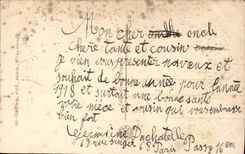 Mon cher oncle
chere tante et cousin
je vien vous presenté mes veux et
souhait de bonne année pour l'année
1918 et surtout une bonne santé
votre niece et cousin qui vous embrasse
bien fort
Germaine Duchatelle
13 rue Singer Paris Passy 16em